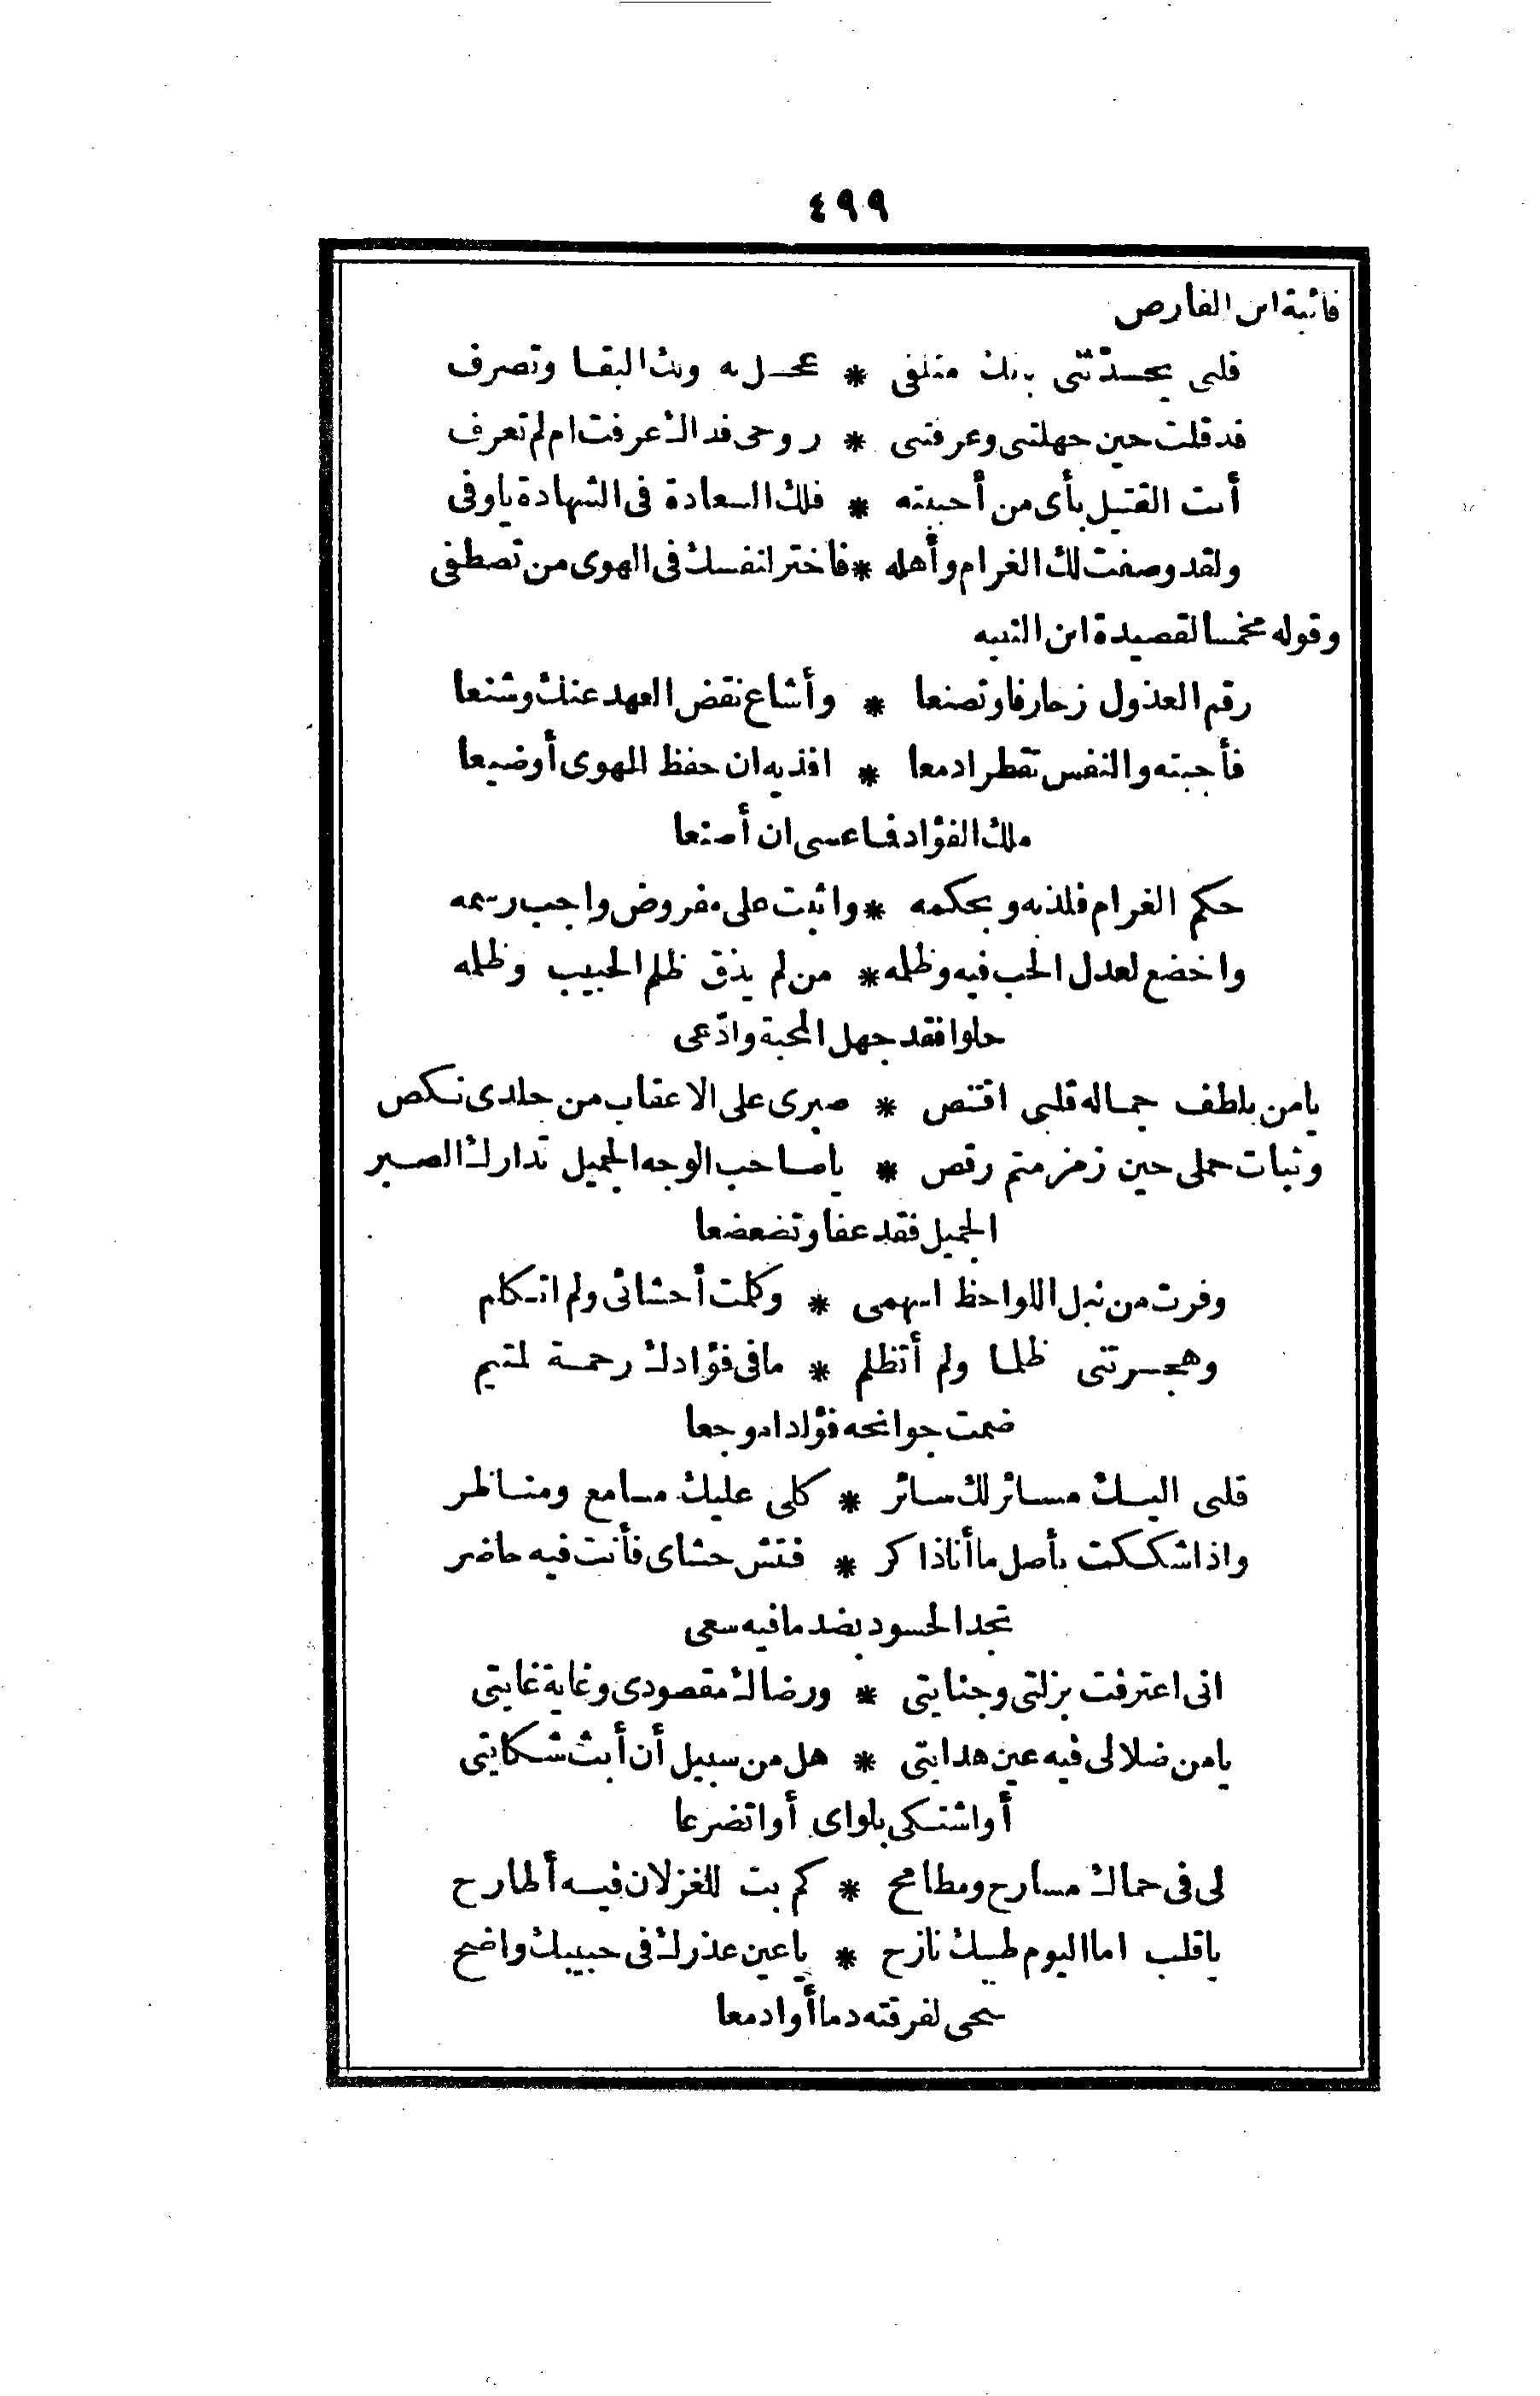 ٤٩٩
فائية ابن الفارض
قلبى يحدّثنى بانك متلفى * عجل به ولك البقا وتصرف
قد قلت حين جهلتنى وعرفتنى * روحى فداك عرفت ام لم تعرف
أنت القتيل بأى من أحببته * فلك السعادة فى الشهادة ياوفى
ولقد وصفت لك الغرام وأهله * فاختر لنفسك فى الهوى من تصطفى
وقوله مخمسا لقصيدة ابن النبيه
رقم العذول زخارفا وتصنعا * وأشاع نقض العهد عنك وشنعا
فأجبته والنفس تقطر ادمعا * افديه ان حفظ الهوى أوضيعا
ملك الفؤاد فما عسى ان أصنعا
حكم الغرام فلذبه وبحكمه * واثبت على مفروض واجب رسمه
واخضع لعدل الحب فيه وظلمه * من لم يذق ظلم الحبيب وظلمه
حلوا فقد جهل المحبة وادّعى
يامن بلطف جماله قلبى اقتنص * صبرى على الاعقاب من جلدى نكص
وثبات حملى حين زمزمتم رقص * ياصاحب الوجه الجميل تدارك الصبر
الجميل فقد عفا وتضعضعا
وفرت من نبل اللواحظ اسهمى * وكلمت أحشائى ولم اتكلم
وهجرتنى ظلما ولم أتظلم * مافى فؤادك رحمة لمتيم
ضمت جوانحه فؤادا موجعا
قلبى اليك مسائر لك سائر * كلى عليك مسامع ومناظر
واذا شككت بأصل ما أنا ذاكر * فتش حشاى فأنت فيه حاضر
تجد الحسود بضد مافيه سعى
انى اعترفت بزلتى وجنايتى * ورضاك مقصودى وغاية غايتى
يامن ضلالى فيه عين هدايتى * هل من سبيل أن أبث شكايتى
أواشتكى بلواى أواتضرعا
لى فى حماك مسارح ومطامح * كم بت للغزلان فيه أطارح
ياقلب اما اليوم طبيك نازح * ياعين عذرك فى حبيبك واضح
سحى لفرقته دما أوادمعا